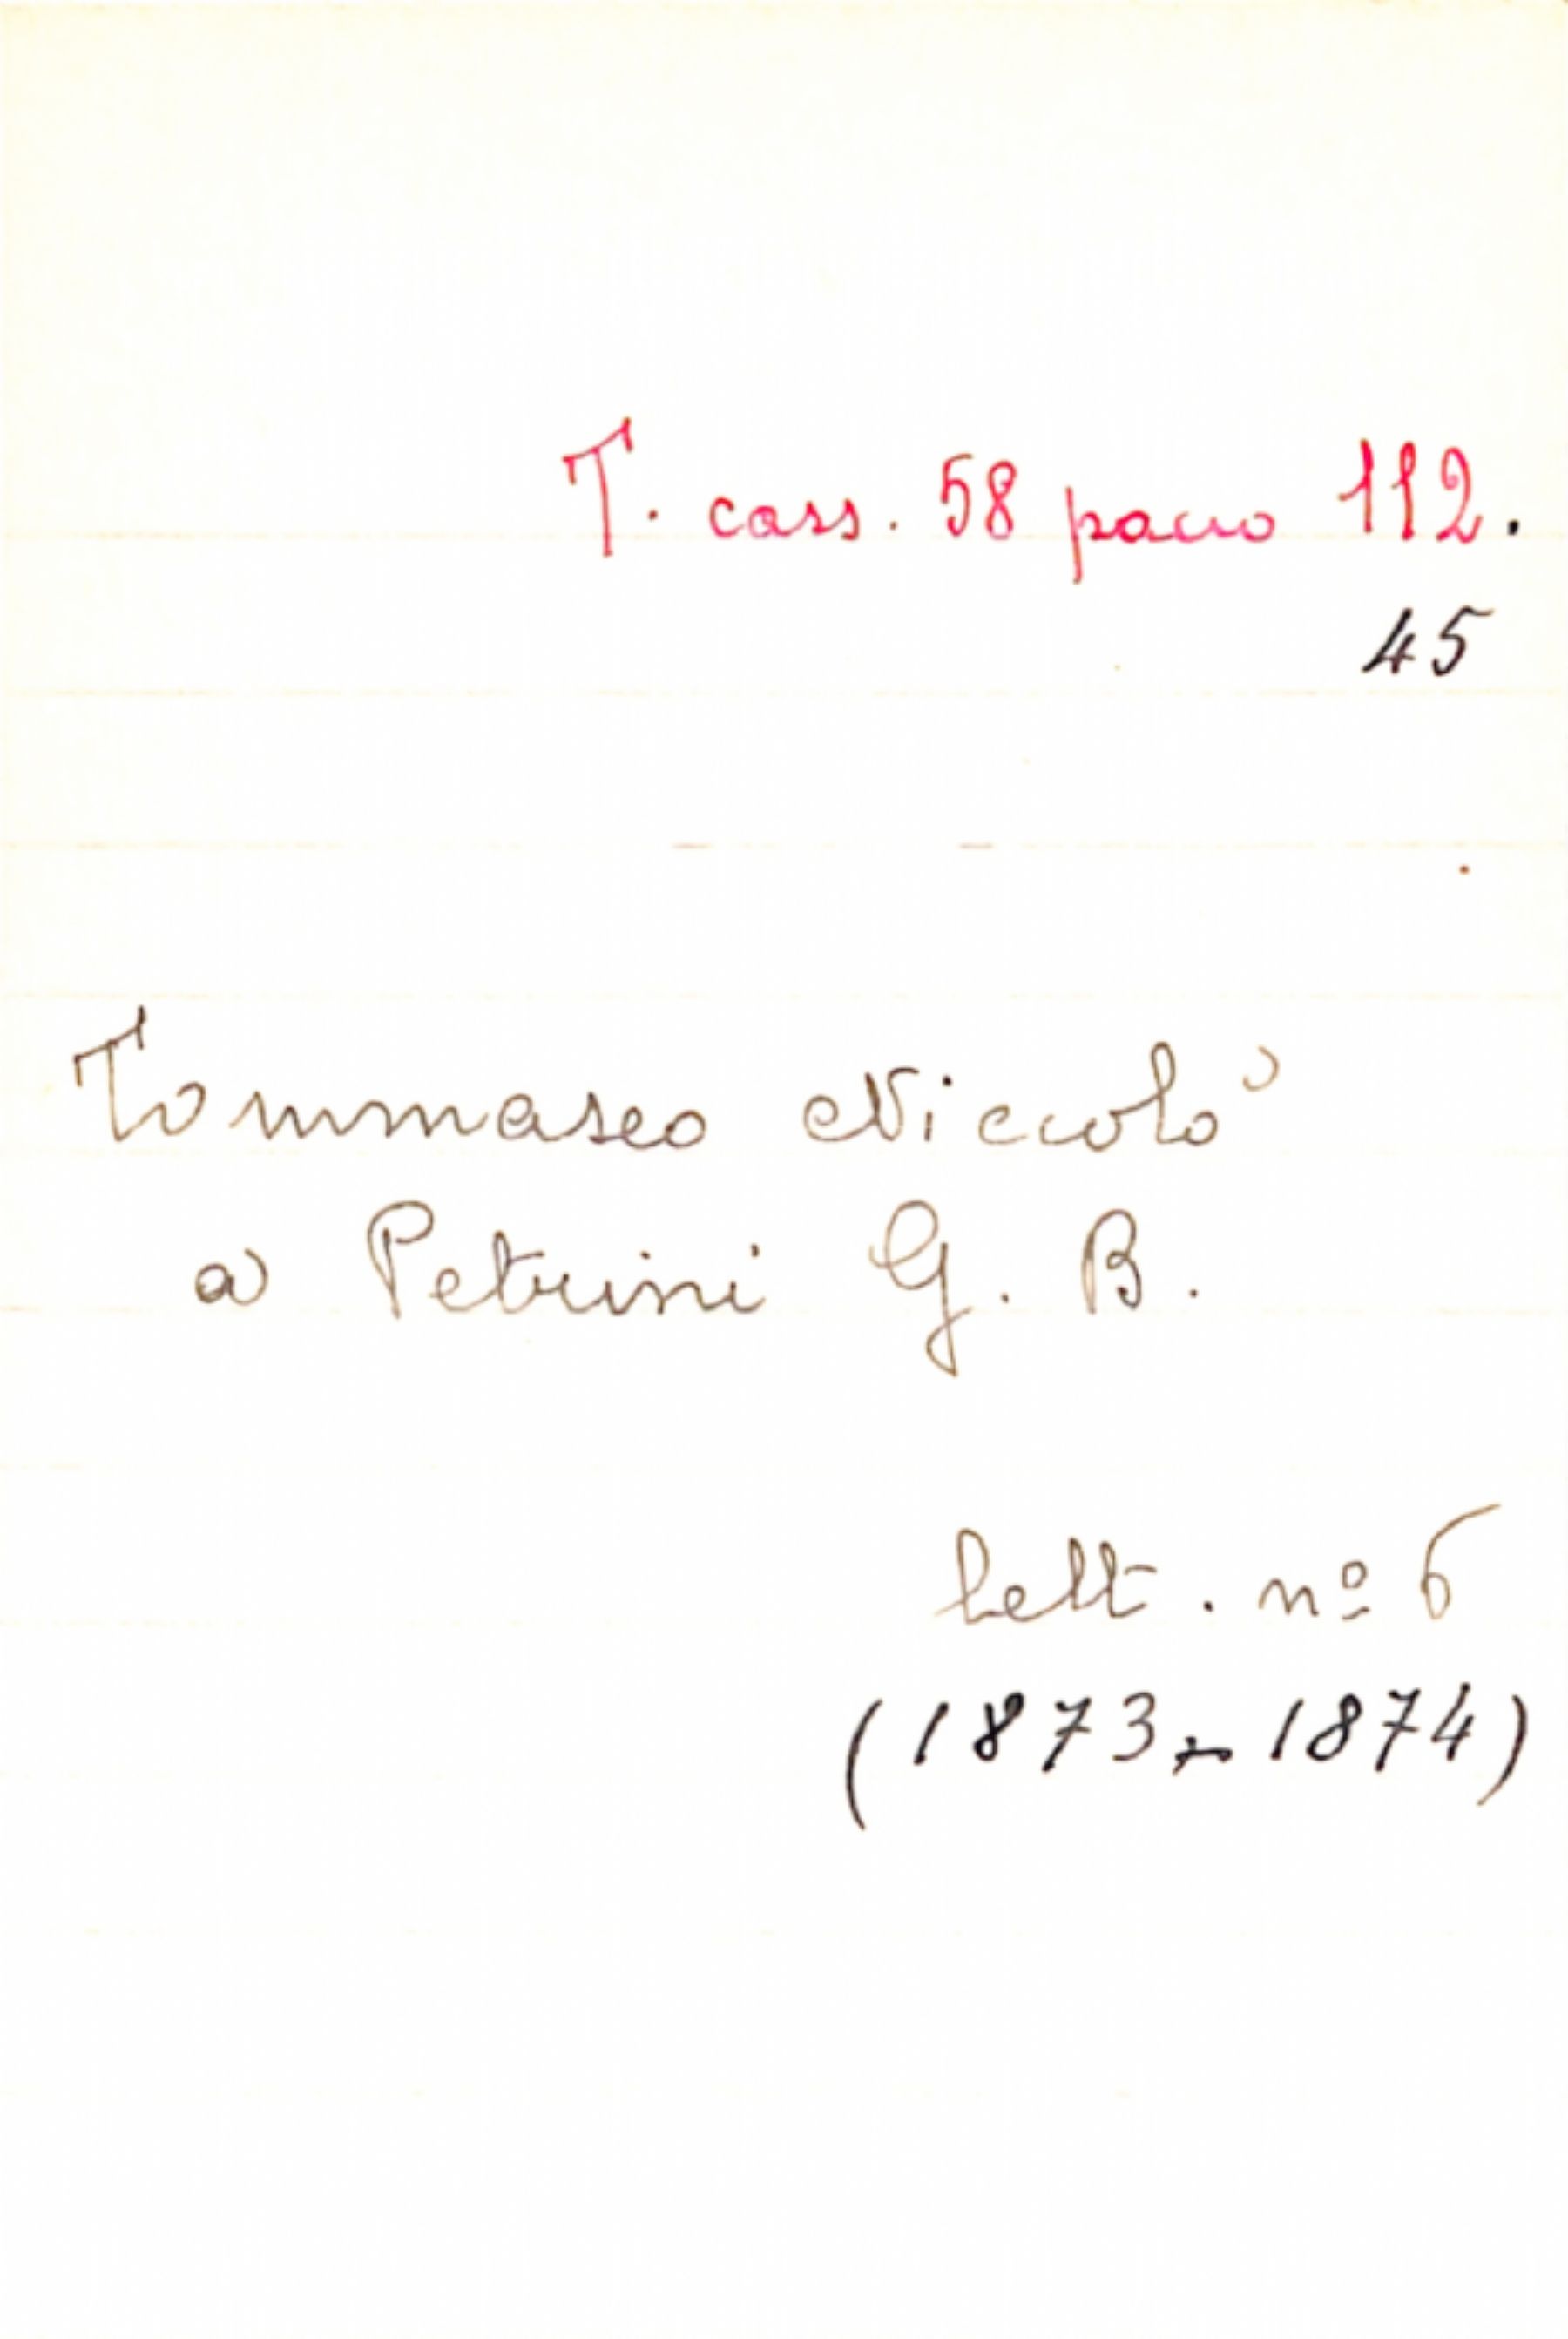 T. cass. 58 pacco 112.
45
Tommaseo Niccolò
a Petrini G. B.
lett. nº 6
(1873-1874)